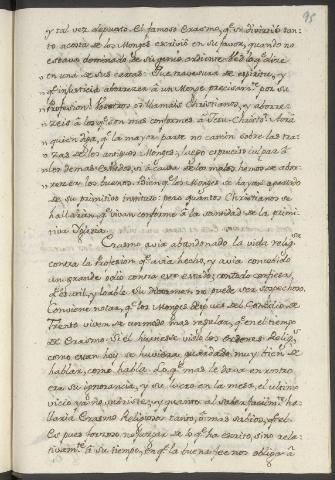 95
y tal vez depuesto. El famoso Erasmo, qe. se divirtió tan-
to acosta de los Monges escrivió en su favor, quando no
estava dominado de su genio ardiente
en una de sus cartas: Que travesura de espiritu, y
qe. injusticia aborrezer à un Monge precisamte. por su
Profesion! Vosotros os llamáis Christianos, y aborre-
zeis à los qe. son mas conformes à Jesu-Christo?
quien diga, qe. la mayor parte no camina sobre las tra-
zas de los antiguos Monges, luego es preciso culpar à
los demas Estados, si à causa de los malos, hemos de abor-
rezer los buenos. Bien qe. los Monges se hayan apartado
de su primitivo instituto: pero quantos Christianos se
hallarian, qe. vivan conforme à la sanidad de la primi-
tiva Iglesia.
Erasmo avia abandonado la vida religsa.
contra la Profesion qe. avia hecho, y avia concebido
un grande odio contra este estado; contodo confiesa,
qe. es util, y loable. Su dictamen no puede ser sospechoso.
Conviene notar, qe. los Monges despues del Concilio de
Trento viven de un modo mas regular, qe. en el tiempo
de Erasmo: Si el huviese visto los ordenes Religs.
como estan hoy, se huviera guardado muy bien de
hablar, como habla. Lo qe. mas le dava en rostro
era su ignorancia, y su luxo en la mesa, el ultimo
vicio ya no subsiste: y quanto al saber facilmte. ha-
llaria Erasmo Religiosos tanto, ò mas sabios, qe. el.
Es pues forzoso no juzgar de lo qe. ha escrito, sino rela-
tivamte. à su tiempo, en qe. la buena fee nos obligarà